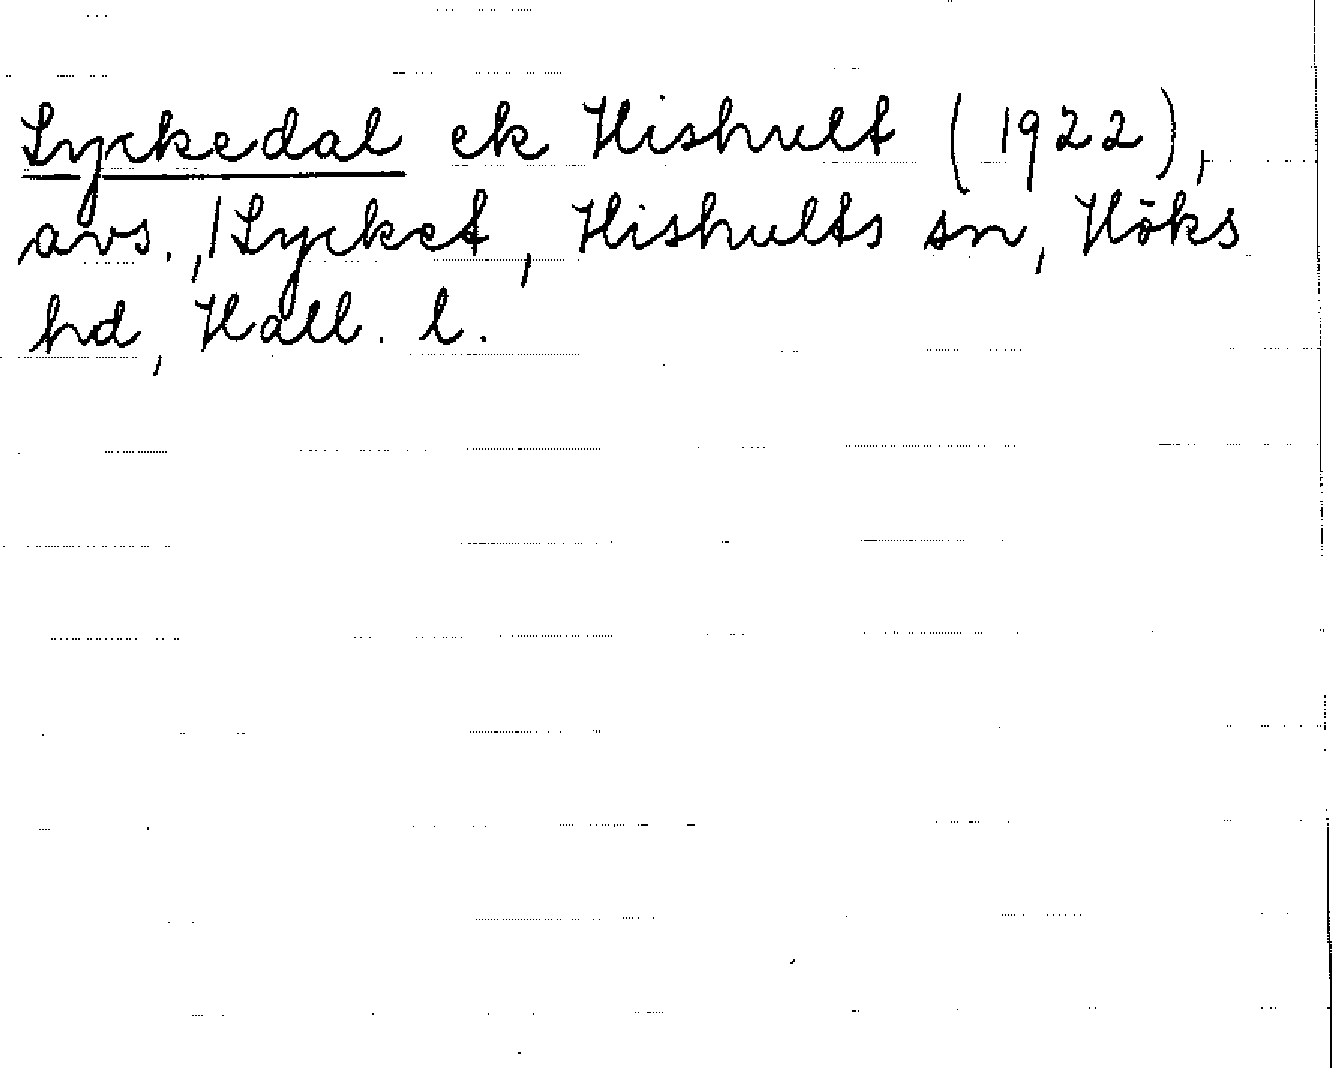 Lyckedal ek Hishult (1922),
avs., 1 Lycket, Hishults sn, Höks
hd, Hall. l.